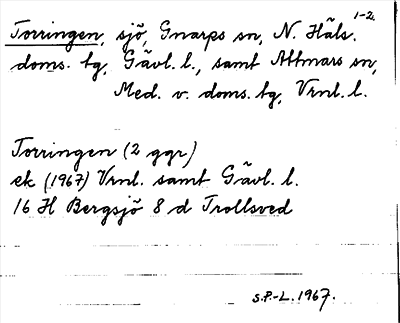 1-2.
Torringen, sjö, Gnarps sn, N. Häls.
doms. tg, Gävl. l., samt Attmars sn,
Med. v. doms. tg, Vrnl. l.
Torringen (2 ggr)
ek (1967) Vrnl. samt Gävl. l.
16 H Bergsjö 8 d Trollsved
S.P.-L. 1967.